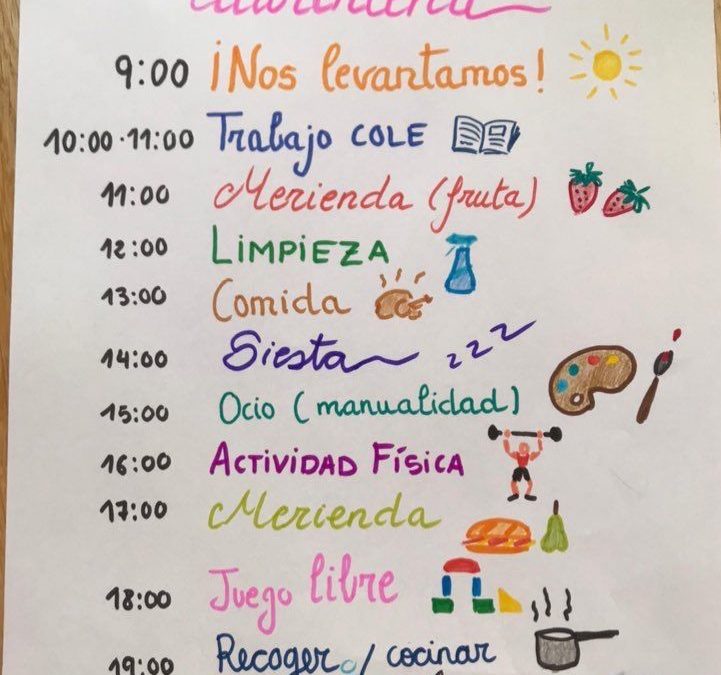 9:00 ¡Nos levantamos!
10:00-11:00 Trabajo COLE
11:00 Merienda (fruta)
12:00 LIMPIEZA
13:00 Comida
14:00 Siesta zzz
15:00 Ocio (manualidad)
16:00 ACTIVIDAD FÍSICA
17:00 Merienda
18:00 Juego libre
19:00 Recoger / cocinar